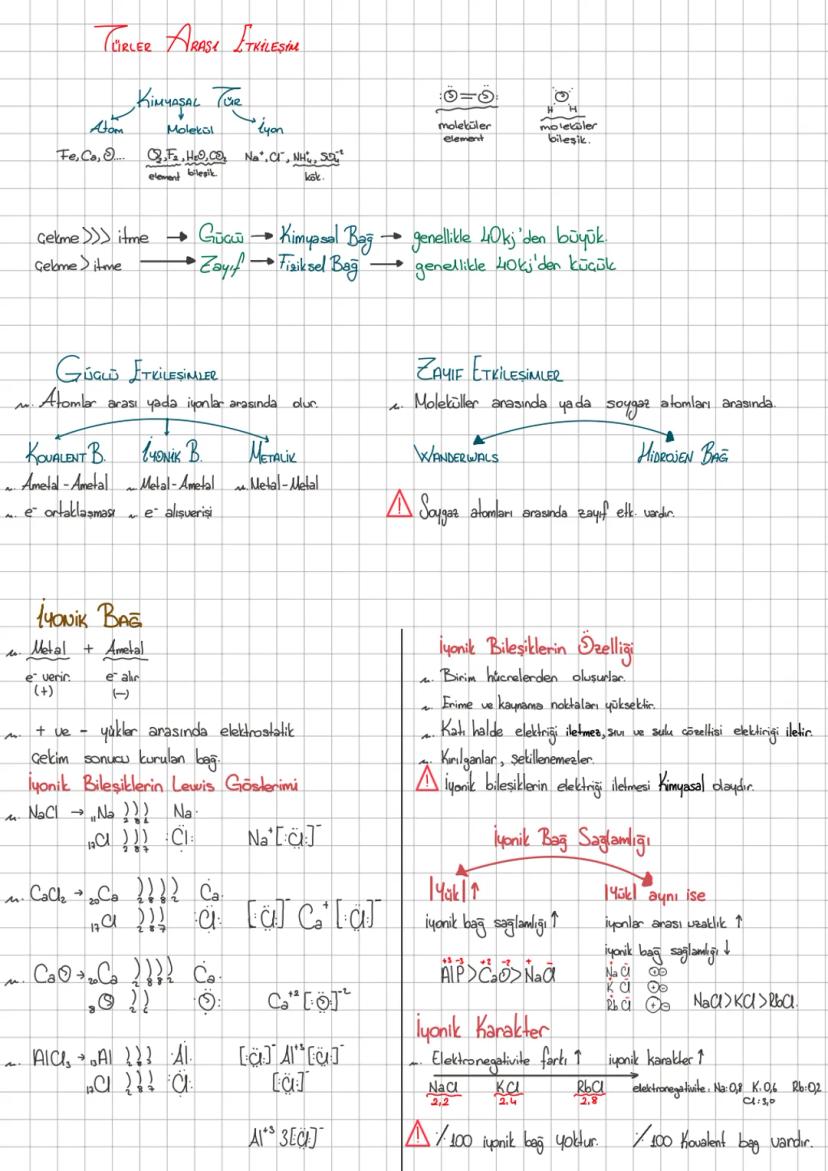 TÜRLER ARASI ETKİLEŞİM
KİMYASAL TÜR
Atom Molekül İyon
Fe, Ca, O.... O₂, F₂, H₂O, CO₂ Na⁺, Cl⁻, NH₄⁺, SO₄⁻²
element bileşik kök.
:Ö=Ö: Ö
H H
moleküler element
moleküler bileşik.
Çekme >>> itme → Güçlü → Kimyasal Bağ → genellikle 40kj'den büyük.
Çekme > itme → Zayıf → Fiziksel Bağ → genellikle 40kj'den küçük
GÜÇLÜ ETKİLEŞİMLER
Atomlar arası yada iyonlar arasında olur.
KOVALENT B. İYONİK B. METALİK
Ametal-Ametal Metal-Ametal Metal-Metal
e⁻ ortaklaşması e⁻ alışverişi
ZAYIF ETKİLEŞİMLER
Moleküller arasında yada soygaz atomları arasında.
WANDERWALS HİDROJEN BAĞ
Soygaz atomları arasında zayıf etk. vardır.
İYONİK BAĞ
Metal + Ametal
e⁻ verir. e⁻ alır
(+) (-)
+ ve - yükler arasında elektrostatik
çekim sonucu kurulan bağ.
İyonik Bileşiklerin Lewis Gösterimi
NaCl → ₁₁Na ))) Na·
2 8 1
₁₇Cl ))) :Cl: Na⁺[:Cl:]⁻
2 8 7
CaCl₂ → ₂₀Ca )))) Ca·
2 8 8 2
₁₇Cl ))) :Cl: [:Cl:]⁻ Ca⁺ [:Cl:]⁻
2 8 7
CaO → ₂₀Ca )))) Ca·
2 8 8 2
₈O )) :O: Ca⁺²[:O:]⁻²
2 6
AlCl₃ → Al ))) ·Al· [:Cl:]⁻ Al⁺³ [:Cl:]⁻
₁₇Cl ))) :Cl: [:Cl:]⁻
2 8 7
Al⁺³ 3[:Cl:]⁻
İyonik Bileşiklerin Özelliği
Birim hücrelerden oluşurlar.
Erime ve kaynama noktaları yüksektir.
Katı halde elektriği iletmez, sıvı ve sulu çözeltisi elektiriği iletir.
Kırılganlar, şekillenemezler.
İyonik bileşiklerin elektriği iletmesi Kimyasal olaydır.
İyonik Bağ Sağlamlığı
|Yük|↑ |Yük| aynı ise
iyonik bağ sağlamlığı ↑ iyonlar arası uzaklık ↑
iyonik bağ sağlamlığı ↓
+3 -3 +2 -2 + -
AlP > CaO > NaCl
Na Cl
K Cl
Rb Cl NaCl > KCl > RbCl
İyonik Karakter
Elektronegativite farkı ↑ iyonik karakter ↑
NaCl KCl RbCl elektronegativite: Na:0,8 K:0,6 Rb:0,2
2,2 2,4 2,8 Cl:3,0
%100 iyonik bağ yoktur. %100 Kovalent bağ vardır.